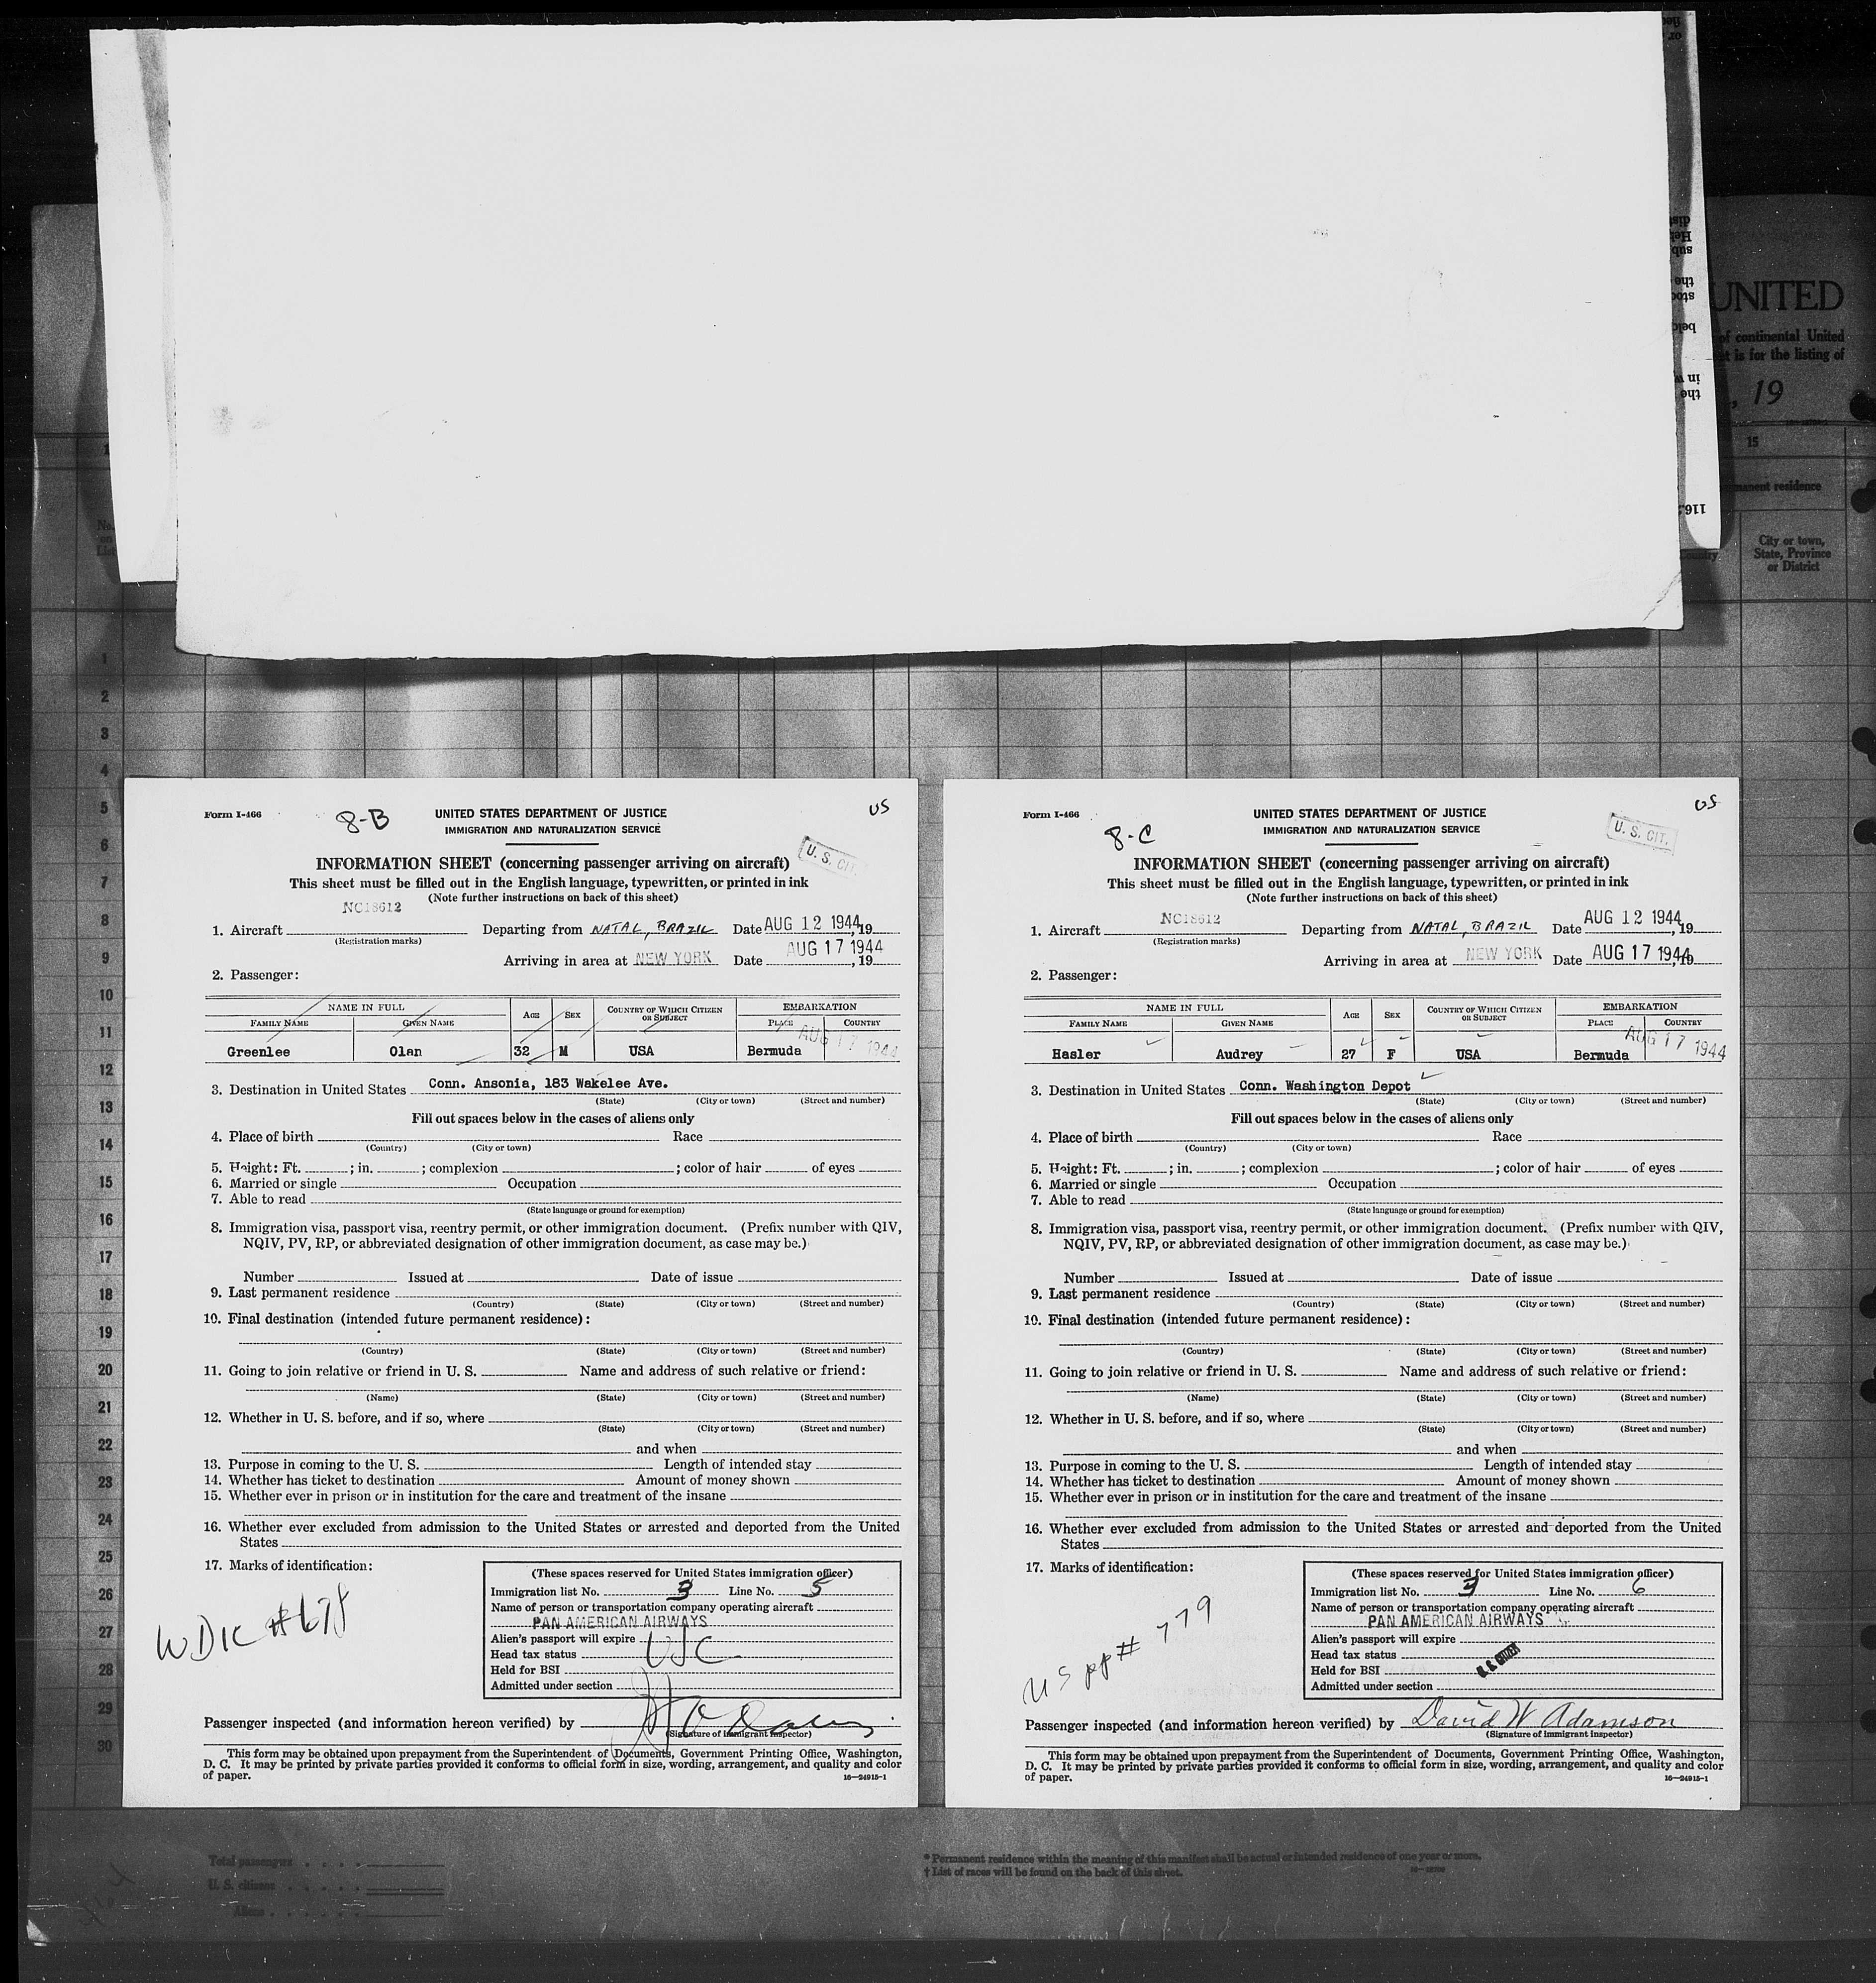 UNITED
of continental United
is for the listing of
, 19
15
manent residence
City or town,
State, Province
or District
No.
on
List
1
2
3
4
5
6
7
8
9
10
11
12
13
14
15
16
17
18
19
20
21
22
23
24
25
26
27
28
29
30
Form I-466
8-B
UNITED STATES DEPARTMENT OF JUSTICE
US
IMMIGRATION AND NATURALIZATION SERVICE
U. S. CIT.
INFORMATION SHEET (concerning passenger arriving on aircraft)
This sheet must be filled out in the English language, typewritten, or printed in ink
(Note further instructions on back of this sheet)
1. Aircraft NC18612 Departing from NATAL, BRAZIL Date AUG 12 1944, 19
(Registration marks)
Arriving in area at NEW YORK Date AUG 17 1944, 19
2. Passenger:
NAME IN FULL AGE SEX COUNTRY OF WHICH CITIZEN OR SUBJECT EMBARKATION
FAMILY NAME GIVEN NAME PLACE COUNTRY
AUG 17 1944
Greenlee Olan 32 M USA Bermuda
3. Destination in United States Conn. Ansonia, 183 Wakelee Ave.
(State) (City or town) (Street and number)
Fill out spaces below in the cases of aliens only
4. Place of birth Race
(Country) (City or town)
5. Height: Ft. ; in. ; complexion ; color of hair of eyes
6. Married or single Occupation
7. Able to read
(State language or ground for exemption)
8. Immigration visa, passport visa, reentry permit, or other immigration document. (Prefix number with QIV,
NQIV, PV, RP, or abbreviated designation of other immigration document, as case may be.)
Number Issued at Date of issue
9. Last permanent residence
(Country) (State) (City or town) (Street and number)
10. Final destination (intended future permanent residence):
(Country) (State) (City or town) (Street and number)
11. Going to join relative or friend in U. S. Name and address of such relative or friend:
(Name) (State) (City or town) (Street and number)
12. Whether in U. S. before, and if so, where
(State) (City or town) (Street and number)
and when
13. Purpose in coming to the U. S. Length of intended stay
14. Whether has ticket to destination Amount of money shown
15. Whether ever in prison or in institution for the care and treatment of the insane
16. Whether ever excluded from admission to the United States or arrested and deported from the United
States
17. Marks of identification:
(These spaces reserved for United States immigration officer)
Immigration list No. 3 Line No. 5
Name of person or transportation company operating aircraft
PAN AMERICAN AIRWAYS
Alien's passport will expire
Head tax status USC
Held for BSI
Admitted under section
Passenger inspected (and information hereon verified) by
(Signature of Immigrant Inspector)
This form may be obtained upon prepayment from the Superintendent of Documents, Government Printing Office, Washington,
D. C. It may be printed by private parties provided it conforms to official form in size, wording, arrangement, and quality and color
of paper.
16—24915-1
Form I-466
8-C
UNITED STATES DEPARTMENT OF JUSTICE
US
IMMIGRATION AND NATURALIZATION SERVICE
U. S. CIT.
INFORMATION SHEET (concerning passenger arriving on aircraft)
This sheet must be filled out in the English language, typewritten, or printed in ink
(Note further instructions on back of this sheet)
1. Aircraft NC18612 Departing from NATAL, BRAZIL Date AUG 12 1944, 19
(Registration marks)
Arriving in area at NEW YORK Date AUG 17 1944, 19
2. Passenger:
NAME IN FULL AGE SEX COUNTRY OF WHICH CITIZEN OR SUBJECT EMBARKATION
FAMILY NAME GIVEN NAME PLACE COUNTRY
AUG 17 1944
Hasler Audrey 27 F USA Bermuda
3. Destination in United States Conn. Washington Depot
(State) (City or town) (Street and number)
Fill out spaces below in the cases of aliens only
4. Place of birth Race
(Country) (City or town)
5. Height: Ft. ; in. ; complexion ; color of hair of eyes
6. Married or single Occupation
7. Able to read
(State language or ground for exemption)
8. Immigration visa, passport visa, reentry permit, or other immigration document. (Prefix number with QIV,
NQIV, PV, RP, or abbreviated designation of other immigration document, as case may be.)
Number Issued at Date of issue
9. Last permanent residence
(Country) (State) (City or town) (Street and number)
10. Final destination (intended future permanent residence):
(Country) (State) (City or town) (Street and number)
11. Going to join relative or friend in U. S. Name and address of such relative or friend:
(Name) (State) (City or town) (Street and number)
12. Whether in U. S. before, and if so, where
(State) (City or town) (Street and number)
and when
13. Purpose in coming to the U. S. Length of intended stay
14. Whether has ticket to destination Amount of money shown
15. Whether ever in prison or in institution for the care and treatment of the insane
16. Whether ever excluded from admission to the United States or arrested and deported from the United
States
17. Marks of identification:
US pp# 779
(These spaces reserved for United States immigration officer)
Immigration list No. 3 Line No. 6
Name of person or transportation company operating aircraft
PAN AMERICAN AIRWAYS
Alien's passport will expire
Head tax status
U. S. CITIZEN
Held for BSI
Admitted under section
Passenger inspected (and information hereon verified) by David W Adamson
(Signature of Immigrant Inspector)
This form may be obtained upon prepayment from the Superintendent of Documents, Government Printing Office, Washington,
D. C. It may be printed by private parties provided it conforms to official form in size, wording, arrangement, and quality and color
of paper.
16—24915-1
Total passengers
U. S. citizens
Aliens
* Permanent residence within the meaning of this manifest shall be actual or intended residence of one year or more.
† List of races will be found on the back of this sheet.